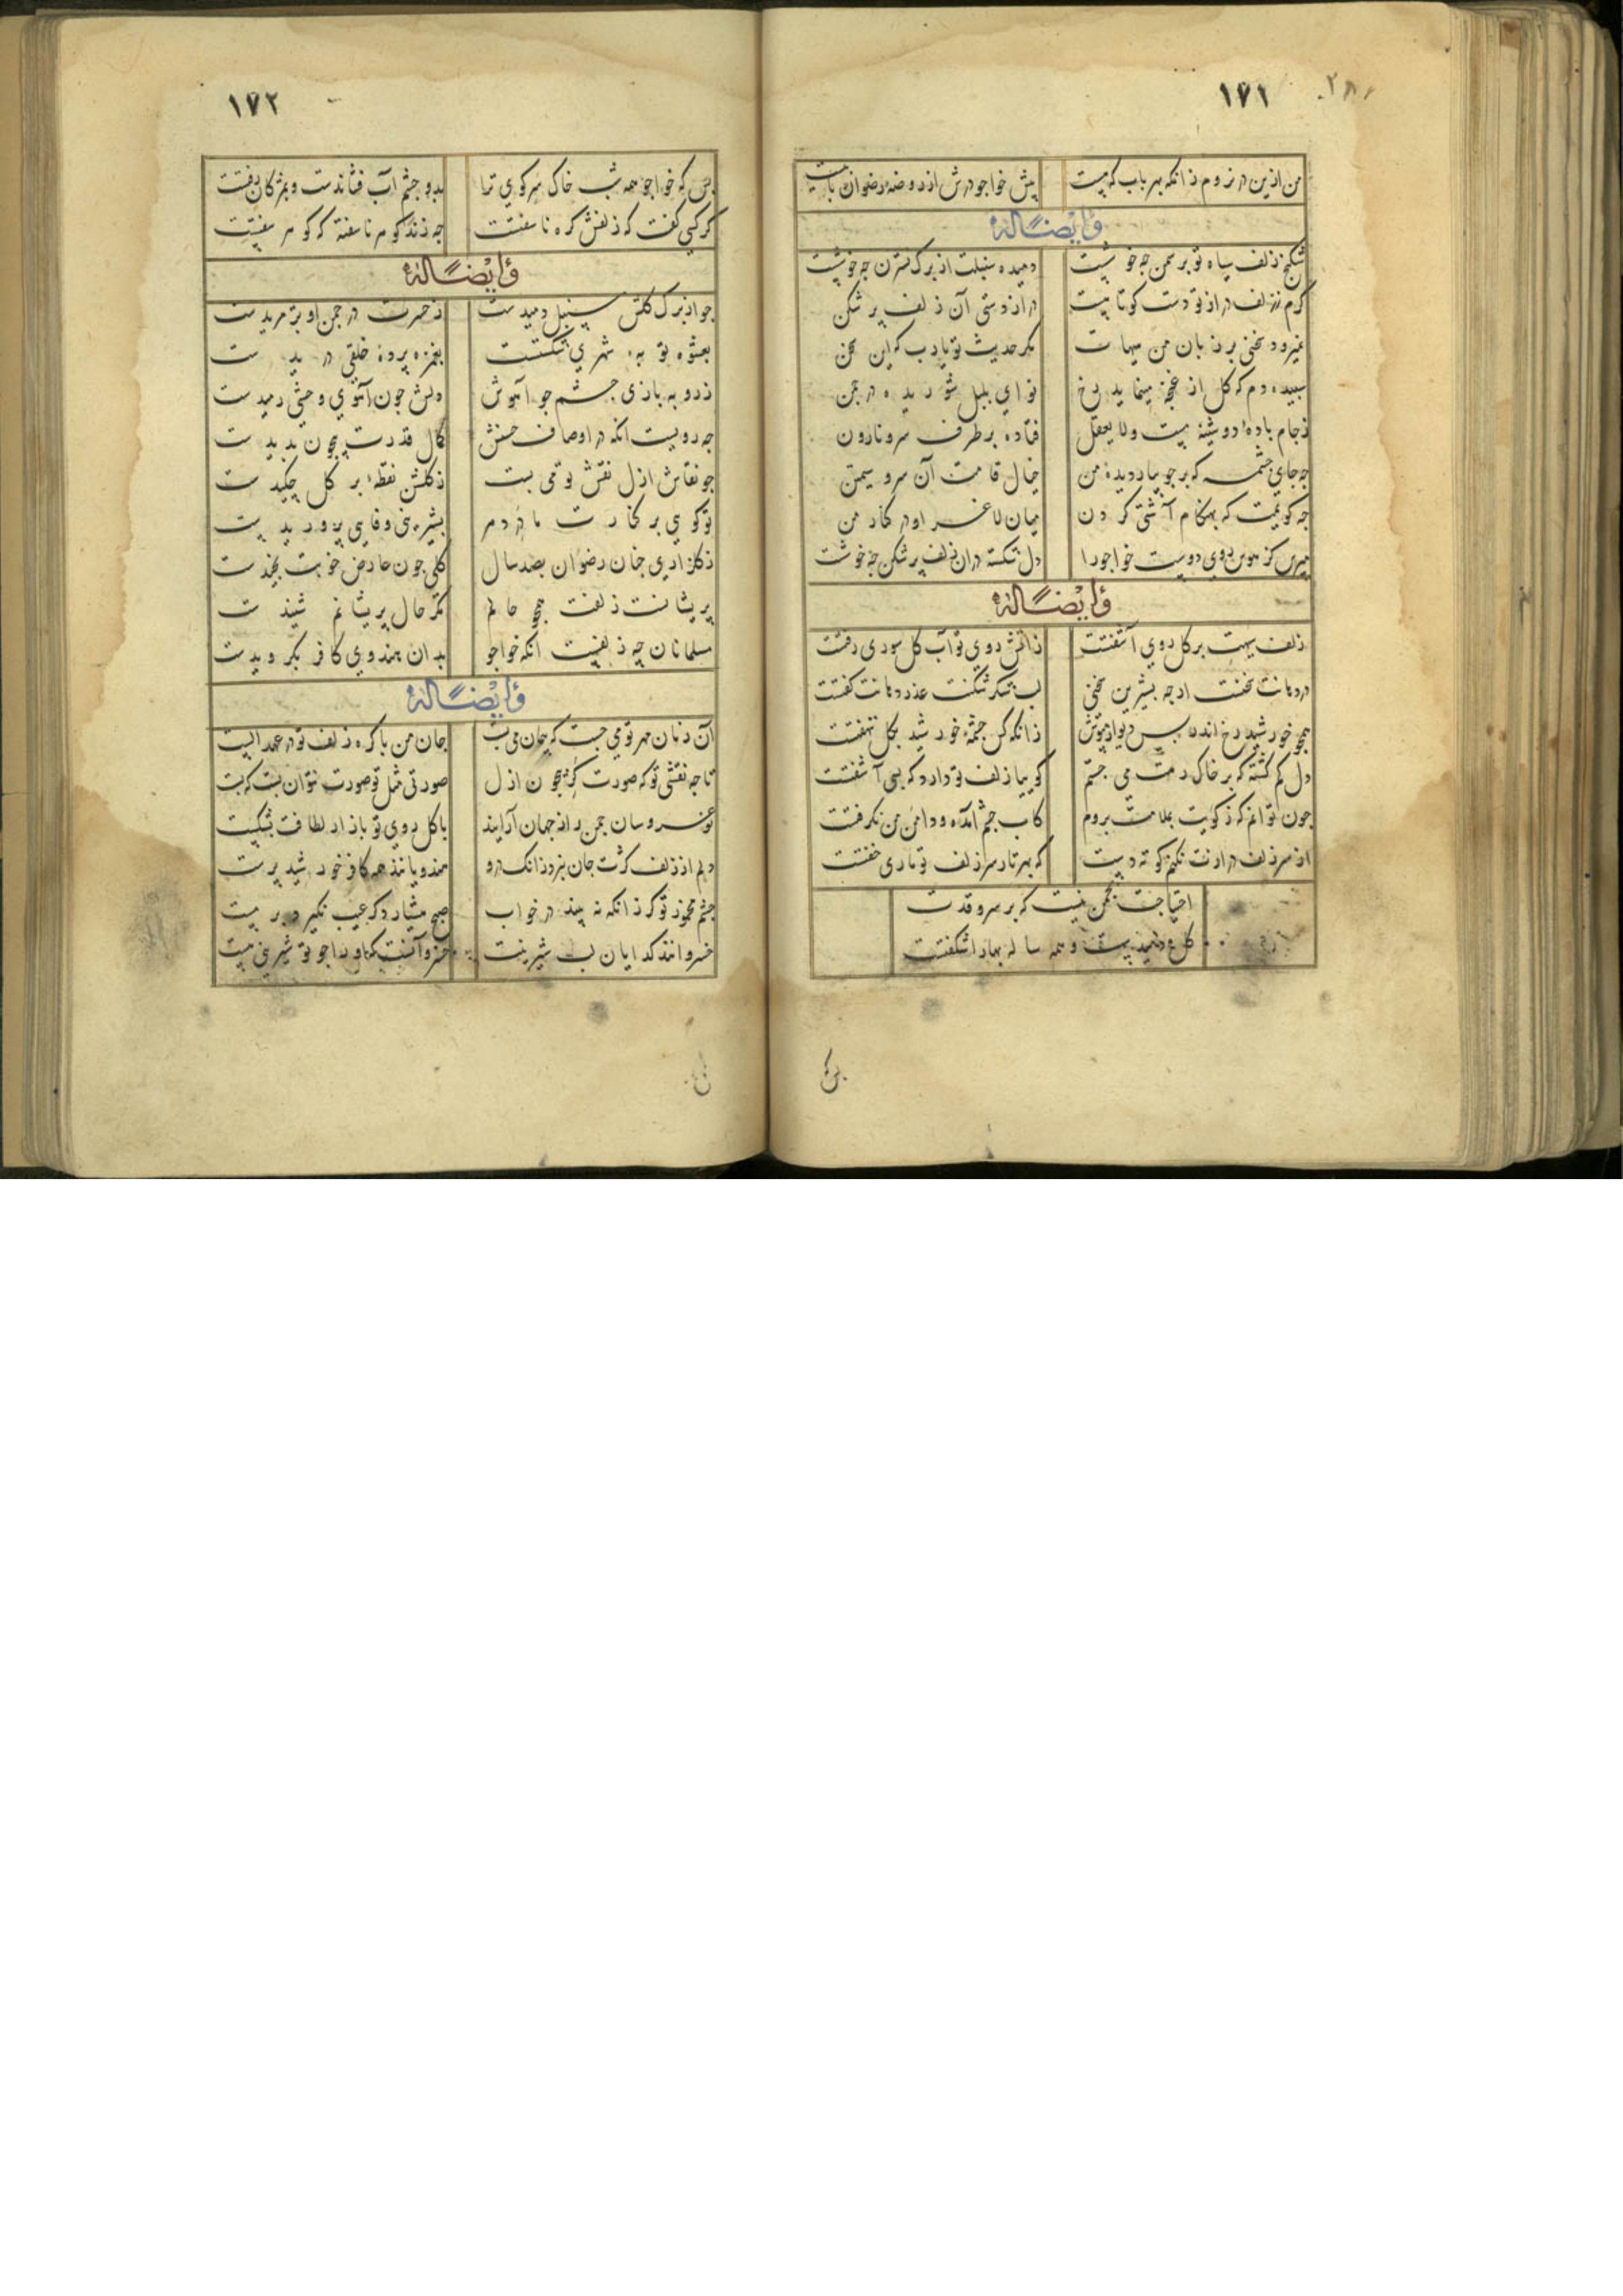 ١٧١
٢٨١
من ازین در نروم زانکه بهر باب که هست پیش خواجو درش از روضه رضوان بابیست
وایضاً له
شکنج زلف سیاه تو بر سمن چه خوشست دمیده سنبلت از برک نسترن چه خوشست
کرم ز زلف دراز تو دست کوتاهست درازدستی آن زلف پر شکن
نمیرود سخنی بر زبان من هیهات مکر حدیث تو یا رب که این سخن
سپیده دم که کل از غنچه مینماید رخ نوای بلبل شوریده در چمن
ز جام باده دوشینه مست ولا یعقل فتاده بر طرف سرو نارون
چه جای چشمه که بر جویبار دیده من خیال قامت آن سرو سیمتن
چه کویمت که بهنکام آشتی کردن میان لاغر او در کنار من
مپرس کز هوس روی دوست خواجو را دل شکسته در ان زلف پر شکن چه خوشت
وایضاً له
زلف سیهت بر کل روی آشفتت ز آتش روی تو آب کل سوری رفتت
در دهانت سخنست ار چه بشیرین سخنی لب شکر شکنت عذر دهانت کفتت
همچو خورشید رخ اندر پس دیوار مپوش زانکه کس چشمهٔ خورشید بکل ننهفتت
دل کم کشته که بر خاک درت می جستم کوییا زلف تو دارد که بسی آشفتت
چون توانم که ز کویت بملامت بروم کاب چشم آمده و دامن من بکرفتت
از سر زلف درازت نکنم کوته دست که بهر تار سر زلف تو ماری خفتت
احتیاجت بچمن نیست که بر سرو قدت
کل دمیدست و همه ساله بهار اشکفتت
١٧٢
بس که خواجو همه شب خاک سر کوی ترا بدو چشم آب فشاندست و بمژکان رفتت
کر کسی کفت که زلفش کره نا سفتت چه زند کوهر ناسفته که کوهر سفتست
وایضاً له
چو از برک کلش سنبل دمیدست ز حسرت در چمن او پژمریدست
بعشوه توبه شهری شکستت بغمزه پردهٔ خلقی دریدست
ز روبه بازی چشم چو آهوش دلش چون آهوی وحشی رمیدست
چه رویست انکه در اوصاف حسنش کمال قدرت بیچون بدیدست
چو نقاش ازل نقش تو می بست ز کلکش نقطهٔ بر کل چکیدست
تو کویی بر کنارت مادر دهر بشیر بی وفایی پروریدست
ز کلزار جنان رضوان بصد سال کلی چون عارض خوبت نچیدست
پریشانست زلفت همچو حالم مکر حال پریشانم شنیدست
مسلمانان چه زلفیست انکه خواجو بدان هندوی کافر بکرویدست
وایضاً له
آن زمان مهر تو می جست که پیمان می بست جان من با کره زلف تو در عهد الست
تا چه نقشی تو که صورت کر بیچون ازل صورتی مثل تو صورت نتوان بست که بست
نو عروسان چمن را ز جهان آرایند با کل روی تو بازار لطافت بشکست
دلم از زلف کژت جان نبرد زانک درو هندویانند همه کافر خورشید پرست
چشم مخمور تو کر زانکه نه بیند در خواب هیچ هشیار دکر عیب نکیرد بر مست
خسروانند کدایان لب شیرینت خسرو آنست که او را چو تو شیرینی هست